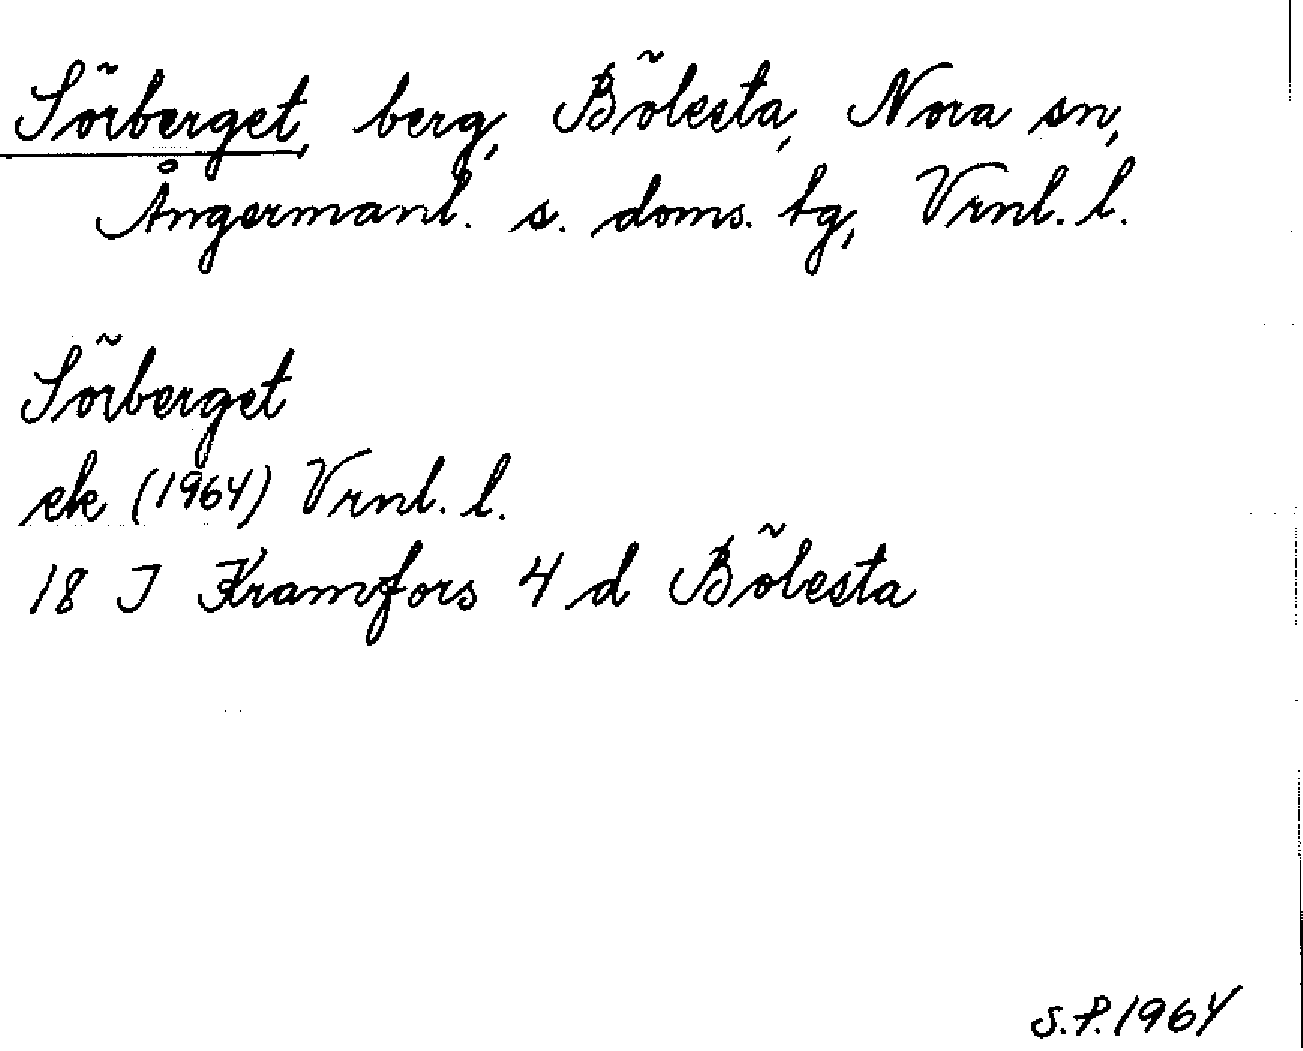 Sörberget, berg, Bölesta, Nora sn,
Ångermanl. s. doms. tg, Vrnl. l.
Sörberget
ek (1964) Vrnl. l.
18 J Kramfors 4 d Bölesta
S.P. 1964